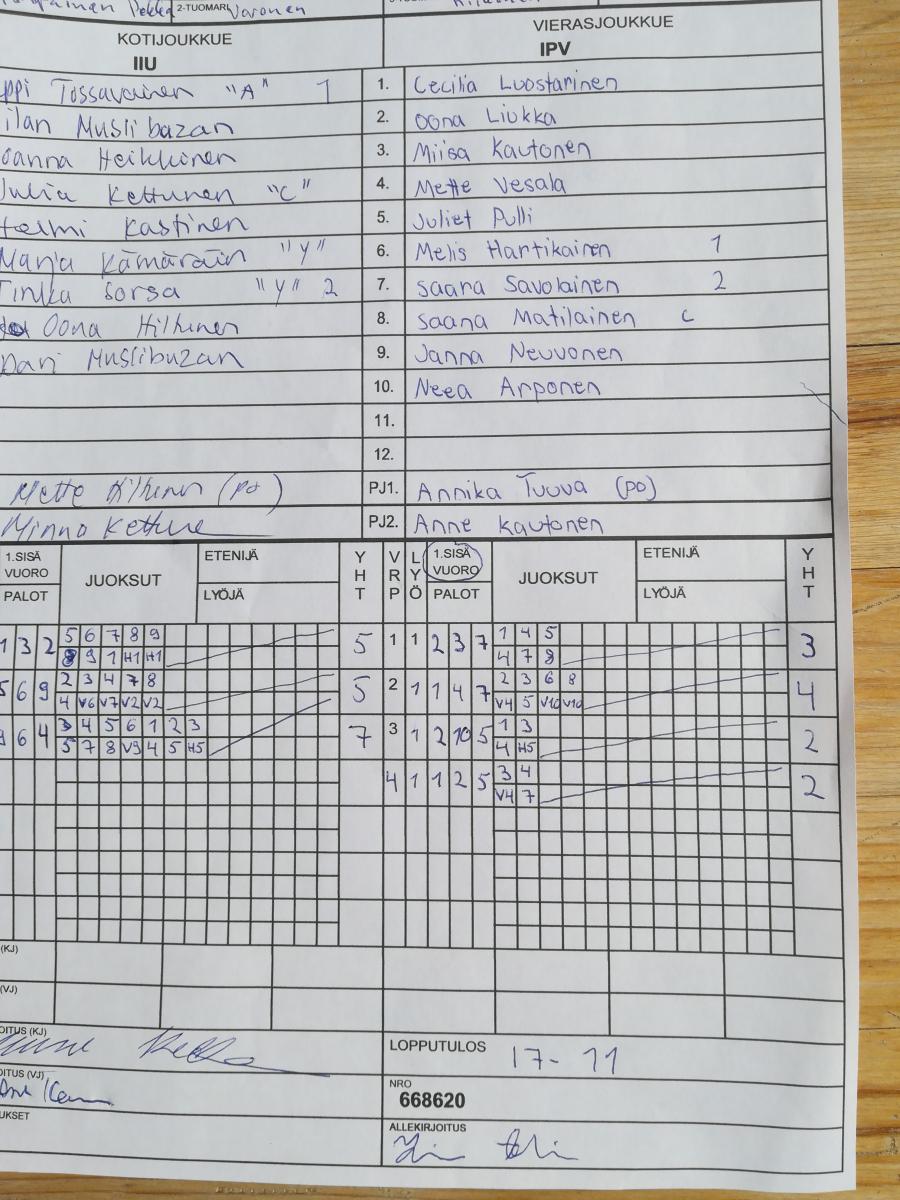 Pekka 2-TUOMARI Varonen
KOTIJOUKKUE VIERASJOUKKUE
IIU IPV
ppi Tossavainen "A" 1 1. Cecilia Luostarinen
ilan Muslibazan 2. Oona Liukka
oanna Heikkinen 3. Miisa Kautonen
Julia Kettunen "C" 4. Mette Vesala
Helmi Kastinen 5. Juliet Pulli
Marja Kämäräin "Y" 6. Melis Hartikainen 1
Tinka Sorsa "Y" 2 7. Saara Savolainen 2
Oona Hiltunen 8. Saana Matilainen C
Dari Muslibuzan 9. Janna Neuvonen
10. Neea Arponen
11.
12.
Mette Hiltunen (PO) PJ1. Annika Tuuva (PO)
Minna Kettune PJ2. Anne Kautonen
1.SISÄ VUORO JUOKSUT ETENIJÄ YHT VRP LYÖ 1.SISÄ VUORO JUOKSUT ETENIJÄ YHT
PALOT LYÖJÄ PALOT LYÖJÄ
1 3 2 5 6 7 8 9 5 1 1 2 3 7 1 4 5 3
8 9 1 H1 H1 4 7 8
5 6 9 2 3 4 7 8 5 2 1 1 4 7 2 3 6 8 4
4 V6 V7 V2 V2 V4 5 V10 V10
9 6 4 3 4 5 6 1 2 3 7 3 1 2 10 5 1 3 2
5 7 8 V9 4 5 H5 4 H5
4 1 1 2 5 3 4 2
V4 7
(KJ)
(VJ)
OITUS (KJ)
LOPPUTULOS 17-11
OITUS (VJ)
NRO
668620
UKSET
ALLEKIRJOITUS